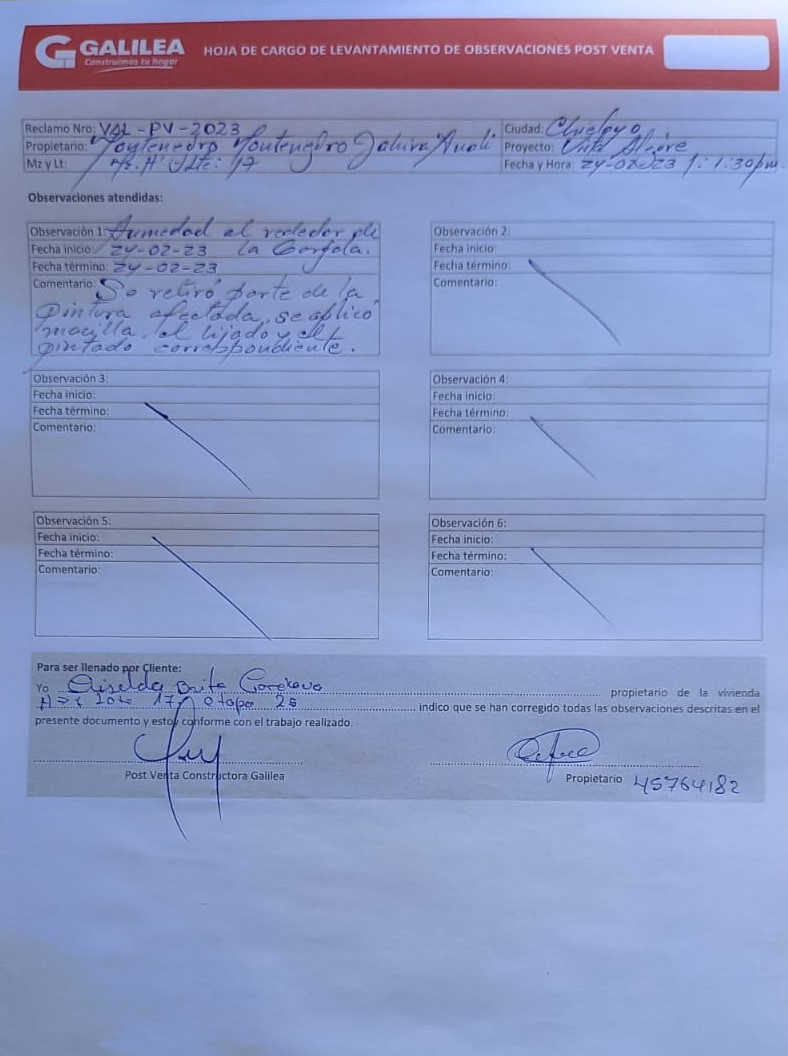 GALILEA
Construimos tu hogar
HOJA DE CARGO DE LEVANTAMIENTO DE OBSERVACIONES POST VENTA
Reclamo Nro: VAL-PV-2023
Ciudad: Chiclayo
Propietario: Montenegro
Proyecto: Vista Alegre
Mz y Lt: Mz. H' Lte: 17
Fecha y Hora: 24-02-23 1:30pm.
Observaciones atendidas:
Observación 1: Humedad al rededor de
Fecha inicio: 24-02-23 la
Fecha término: 24-02-23
Comentario: Se retiró parte de la
pintura afectada, se aplicó
macilla, el lijado y el
pintado correspondiente.
Observación 2:
Fecha inicio:
Fecha término:
Comentario:
Observación 3:
Fecha inicio:
Fecha término:
Comentario:
Observación 4:
Fecha inicio:
Fecha término:
Comentario:
Observación 5:
Fecha inicio:
Fecha término:
Comentario:
Observación 6:
Fecha inicio:
Fecha término:
Comentario:
Para ser llenado por Cliente:
Yo Griselda propietario de la vivienda
17 etapa indico que se han corregido todas las observaciones descritas en el
presente documento y estoy conforme con el trabajo realizado.
Post Venta Constructora Galilea
Propietario 45764182